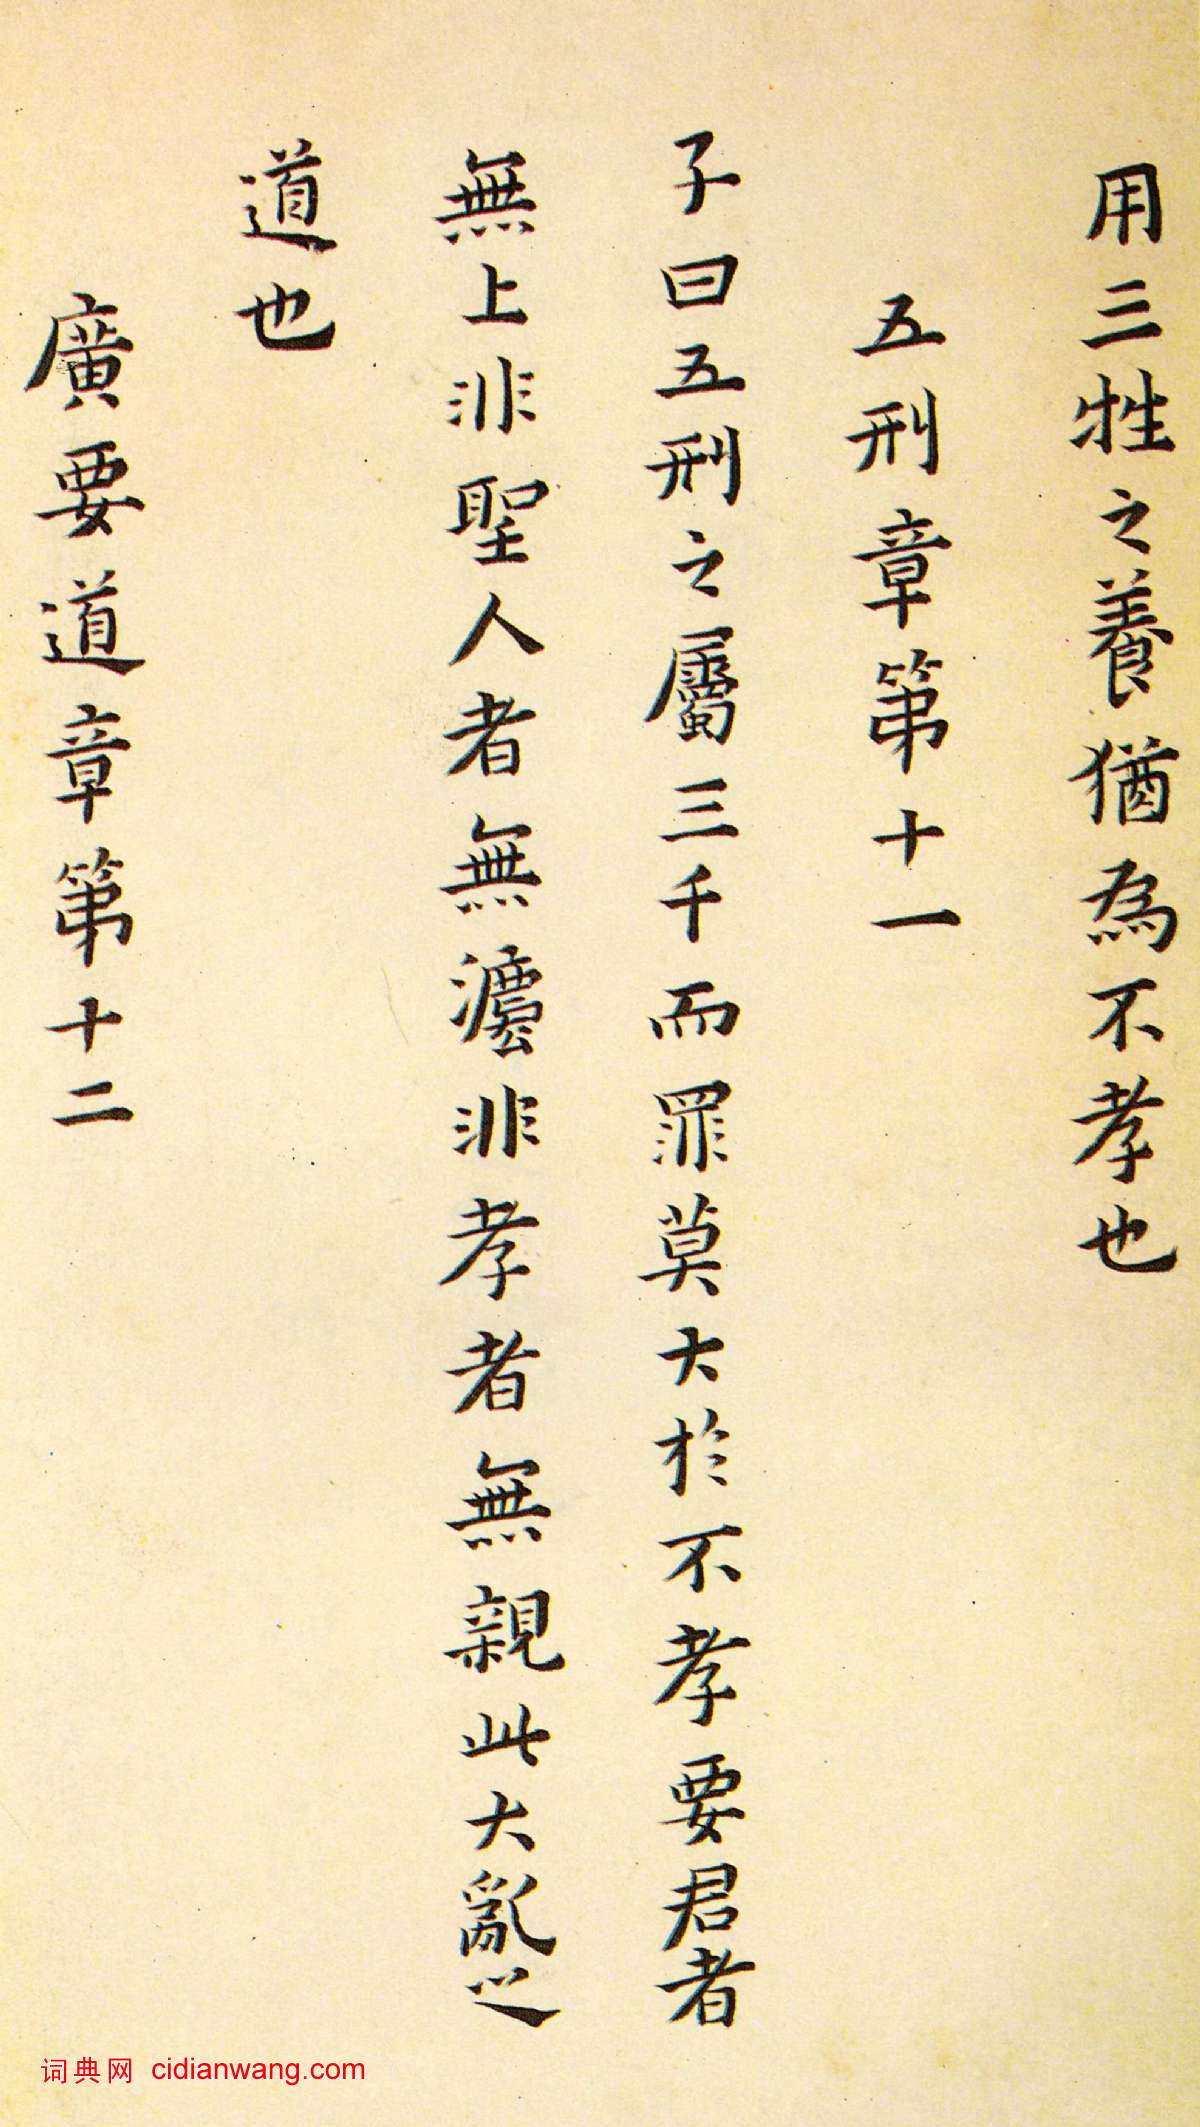 用三牲之養猶為不孝也
五刑章第十一
子曰五刑之屬三千而罪莫大於不孝要君者
無上非聖人者無灋非孝者無親此大亂之
道也
廣要道章第十二
词典网 cidianwang.com